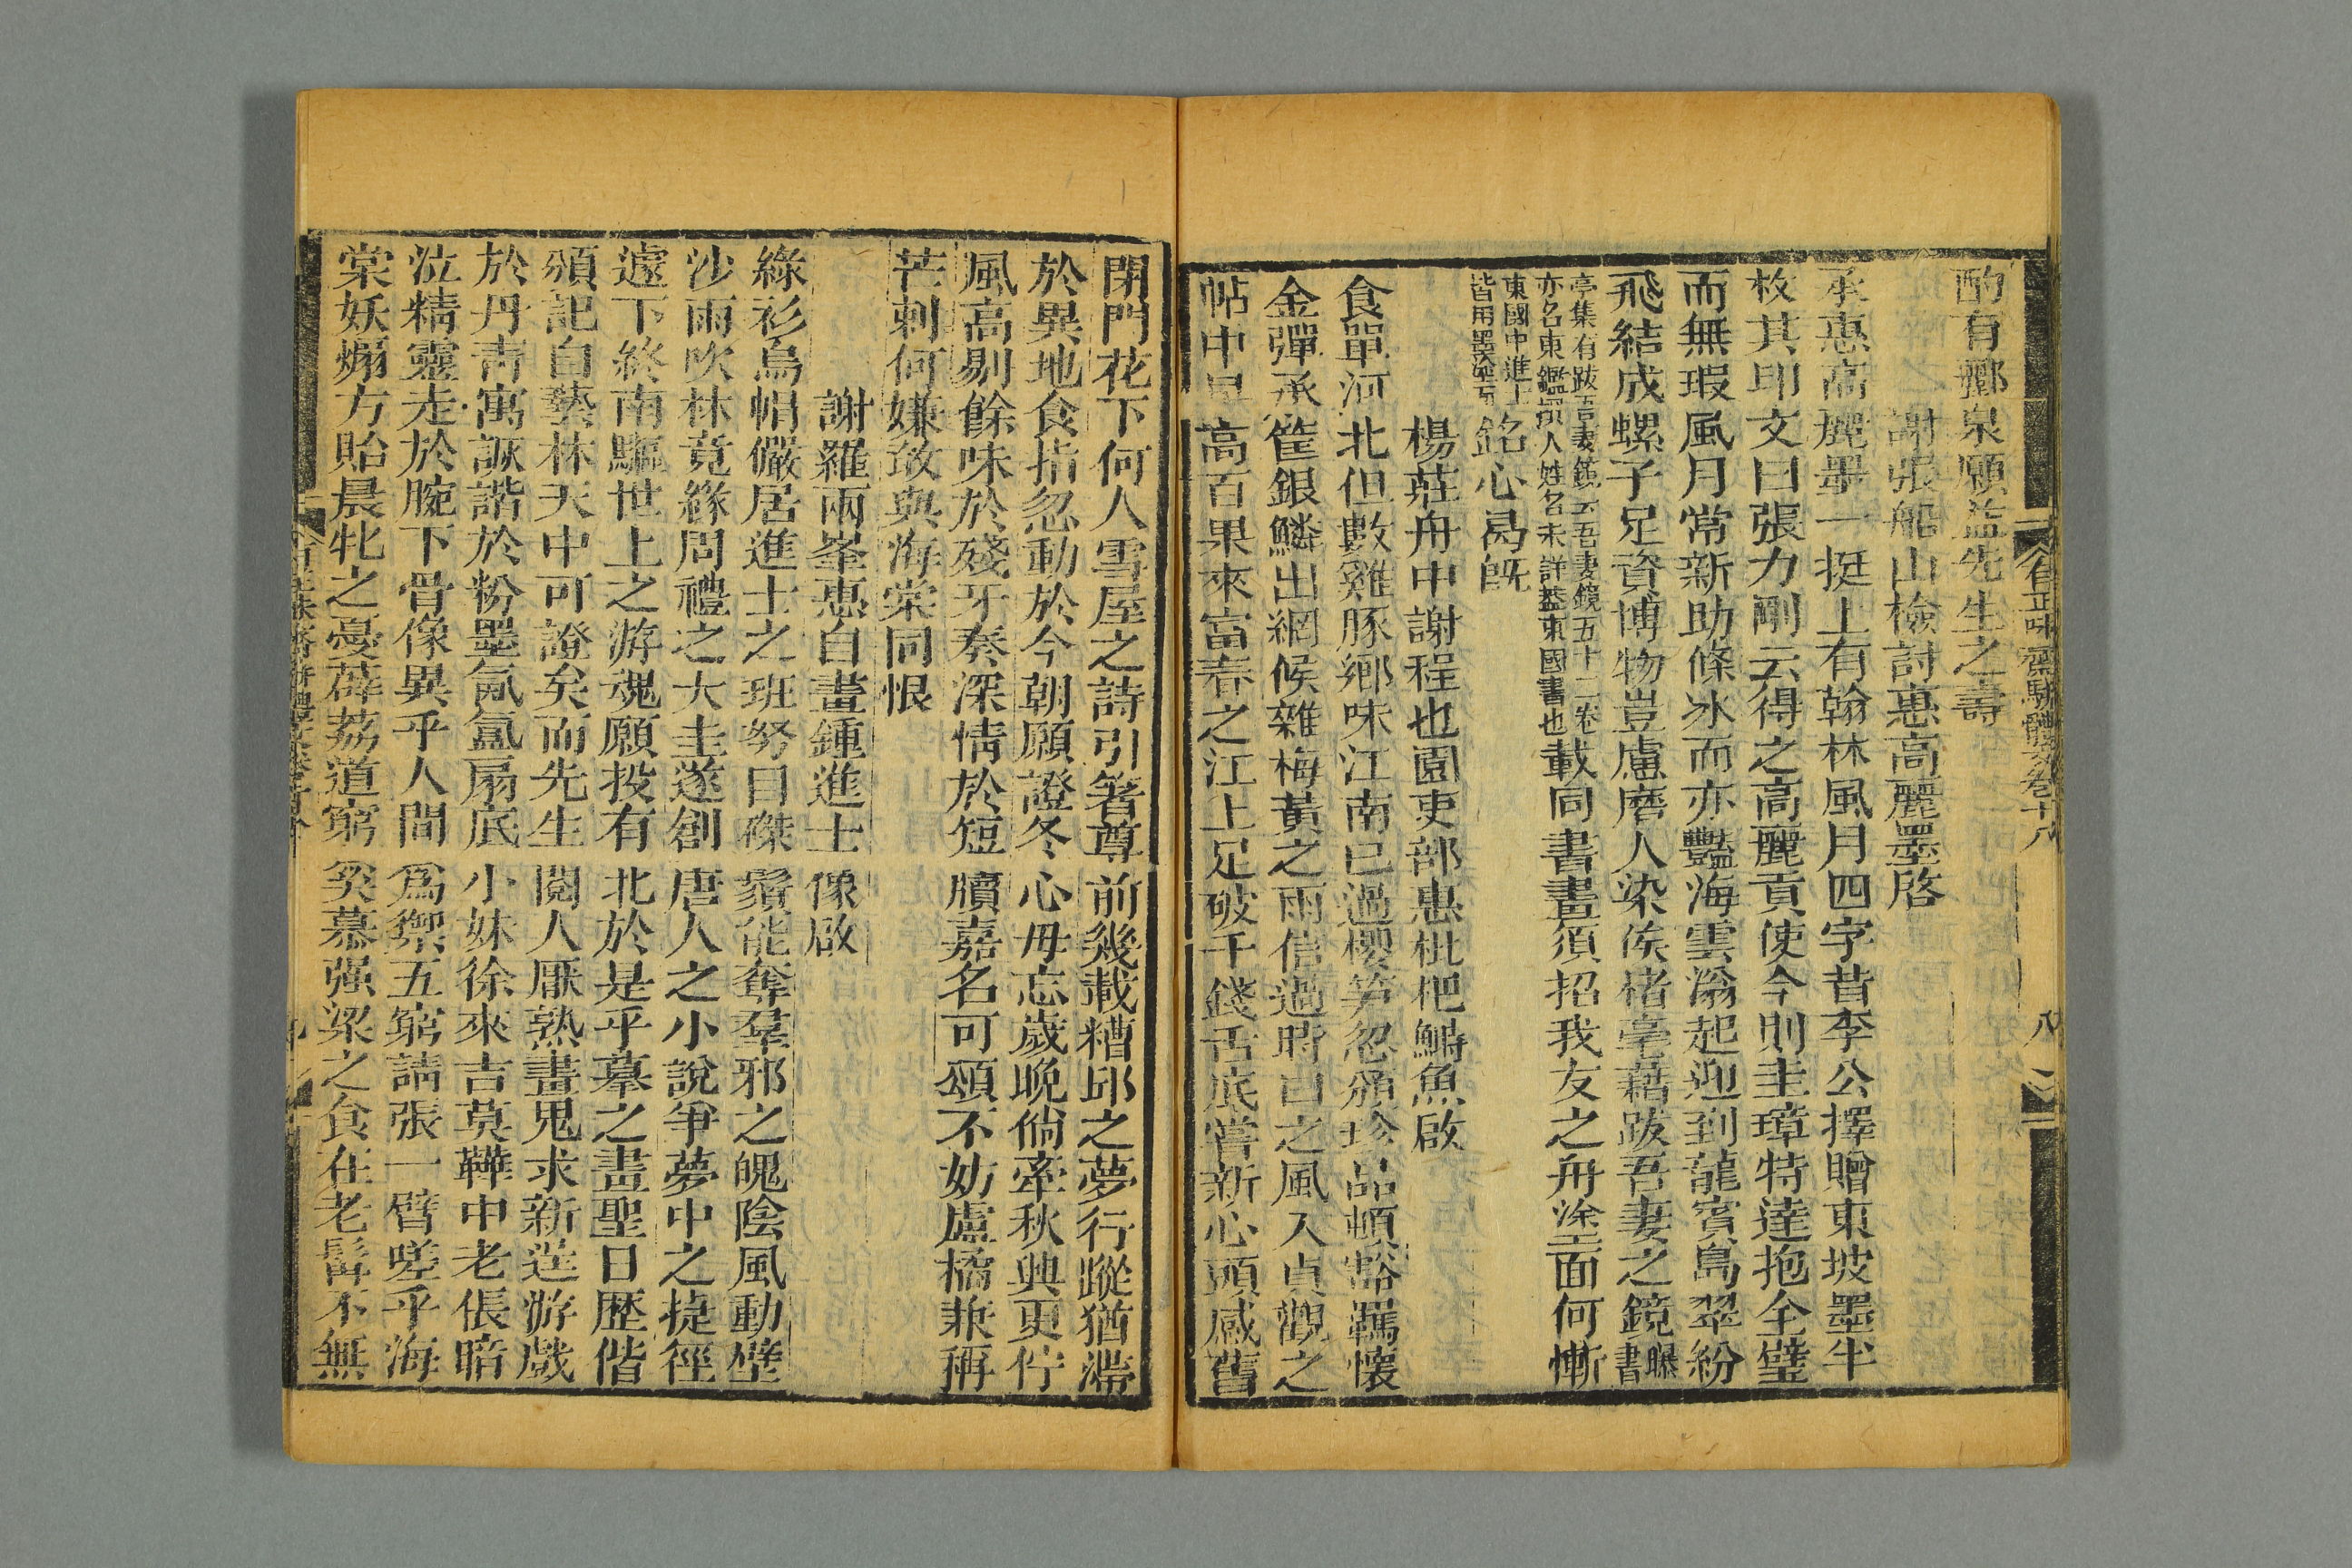 有正味齋駢體文卷十八　八
酌有酈泉願益先生之壽
謝張船山檢討惠高麗墨啓
承惠高麗墨一挺上有翰林風月四字昔李公擇贈東坡墨半
枚其印文曰張力剛云得之高麗貢使今則圭璋特達抱全璧
而無瑕風月常新助條冰而亦豔海雲滃起迎到龍賓島翠紛
飛結成螺子足資博物豈慮磨人染俟楮毫藉跋吾妻之鏡曝書
亭集有跋吾妻鏡云吾妻鏡五十二卷
亦名東鑑撰人姓名未詳葢東國書也載同書畫須招我友之舟塗面何慚
東國中進士
皆用墨塗面銘心曷旣
楊莊舟中謝程也園吏部惠枇杷鰣魚啟
食單河北但數雞豚鄉味江南已過櫻筍忽頒珍品頓豁羈懷
金彈承筐銀鱗出網候雜梅黃之雨信過時由之風入貞觀之
帖中品高百果來富春之江上足破千錢舌底嘗新心頭感舊
閉門花下何人雪屋之詩引箸尊前幾載糟邱之夢行蹤猶滯
於異地食指忽動於今朝願證冬心毋忘歲晚倘牽秋興更佇
風高剔餘味於殘牙奏深情於短牘嘉名可頌不妨盧橘兼稱
芒刺何嫌致與海棠同恨
謝羅兩峯惠自畫鍾進士像啟
綠衫烏帽儼居進士之班努目磔鬚能奪羣邪之魄陰風動壁
沙雨吹林竟緣周禮之大圭遂創唐人之小說爭夢中之捷徑
遽下終南驅世上之游魂願投有北於是乎摹之畫聖日歷偕
頒記自藝林天中可證矣而先生閱人厭熟畫鬼求新逞游戲
於丹青寓詼諧於粉墨氤氳扇底小妹徐來吉莫鞾中老倀暗
泣精靈走於腕下骨像異乎人間爲禦五窮請張一臂嗟乎海
棠妖煽方貽晨牝之憂薜荔道窮奕慕强梁之食在老髯不無